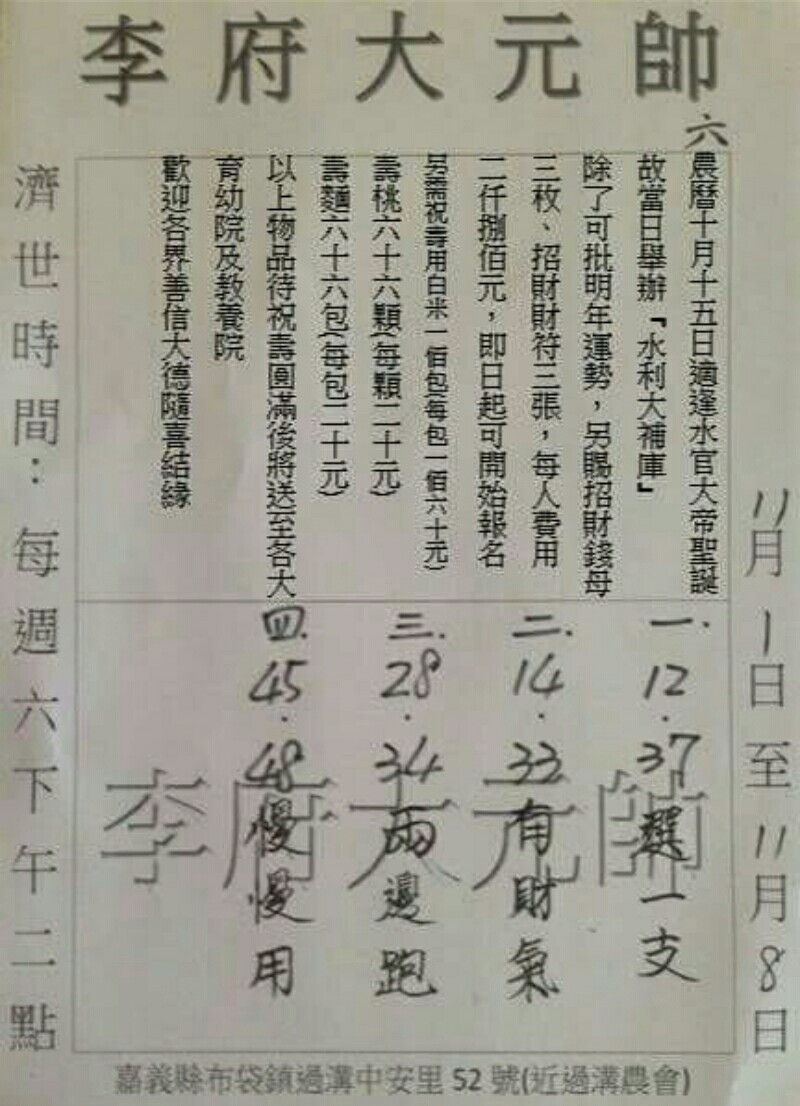 李府大元帥
六
農曆十月十五日適逢水官大帝聖誕
故當日舉辦「水利大補庫」
除了可批明年運勢，另賜招財錢母
三枚、招財財符三張，每人費用
二仟捌佰元，即日起可開始報名
另需祝壽用白米一佰包(每包一佰六十元)
壽桃六十六顆(每顆二十元)
壽麵六十六包(每包二十元)
以上物品待祝壽圓滿後將送至各大
育幼院及教養院
歡迎各界善信大德隨喜結緣
11月1日至11月8日
一.12.37選一支
二.14.33有財氣
三.28.34兩邊跑
四.45.48慢慢用
李府大元帥
濟世時間：每週六下午二點
嘉義縣布袋鎮過溝中安里52號(近過溝農會)